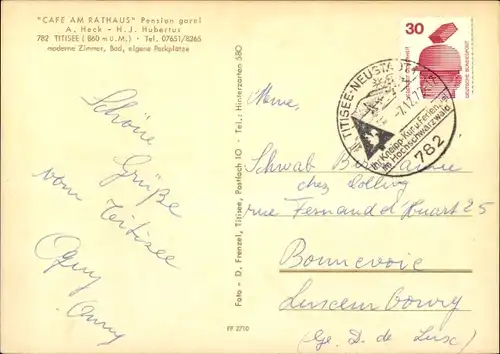 "CAFE AM RATHAUS" Pension garni
A. Heck - H.J. Hubertus
782 TITISEE (860 m ü.M.) - Tel. 07651/8265
moderne Zimmer, Bad, eigene Parkplätze
Schöne
Grüße
vom Titisee
Foto - D. Frenzel, Titisee, Postfach 10 - Tel.: Hinterzarten 580
FF 2710
30
DEUTSCHE BUNDESPOST
TITISEE-NEUSTADT
Kneipp-Kur u. Ferien
im Hochschwarzwald
782
Mme,
Schwab
chez Dolling
rue Fernand Huart 25
Bonnevoie
Luxembourg
(Gr. D. de Lux)